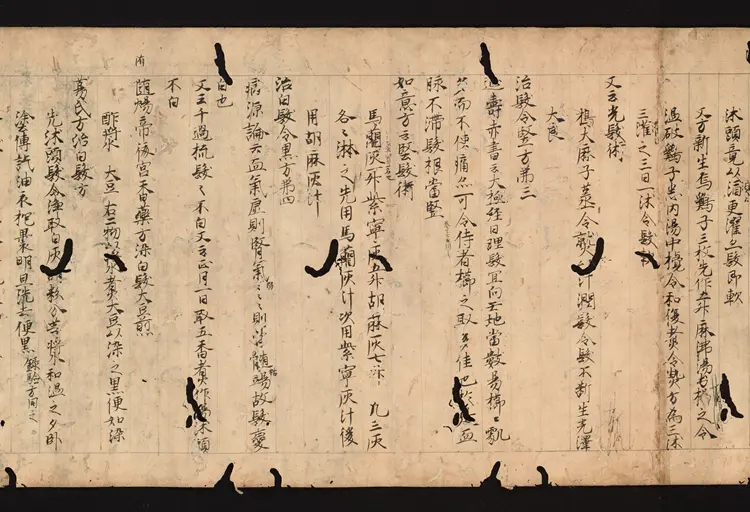 沐頭竟以酒更濯之髮即軟
又方新生烏鷄子三枚先作五升麻沸湯
温破鷄子悉内湯中攪令和復煮令熱方為三沐
三濯之三日一沐令髮
又云光髮術
搗大麻子蒸令 汁潤髮令髮不断生光澤
大良
治髮令竪方第三
壽 書云大極経曰理髮宜向王地當數易櫛〻
而不使痛亦可令侍者櫛之取多佳也 血
脉不滞髮根當竪
如意方云竪髮術
馬蘭灰 紫寧灰五升胡麻灰七升 凡三灰
各〻淋之先用馬蘭灰汁次用紫寧灰汁後
用胡麻灰汁
治白髮令黒方第四
病源論云血氣虚則腎氣〻〻則 髓竭故髮變
白也
又云千過梳髮〻不白又云正月一日取五香煮作湯沐頭
不白
隋煬帝後宮香藥方染白髮大豆煎
酢漿 大豆 右二物 煮大豆以染之黒便如漆
葛氏方治白髮方
先沐頭髮令淨取白灰 分等漿和温之夕卧
塗傅訖油衣 裹明旦洗去便黒 録驗方同之